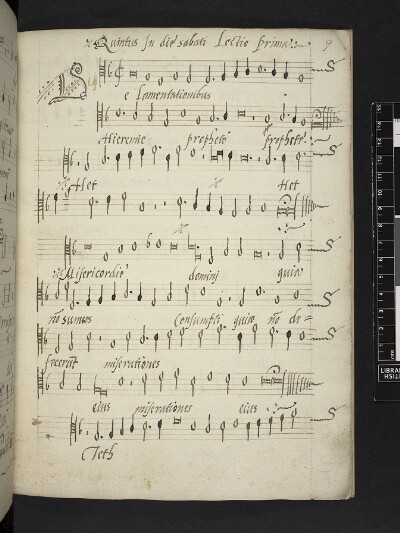 Quintus In die sabati Lectio prima 9
De Lamentationibus
Hieremie prophetę prophetę
Het Het
Misericordię dominj quia
nō sumus Consumpti quia nō de=
fecerūt miserationes
eius miserationes eius
Teth